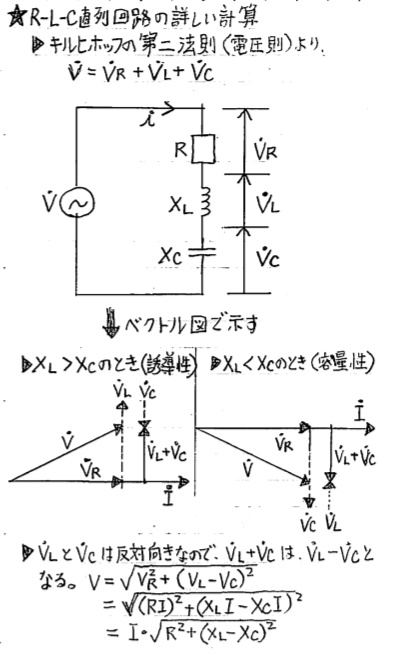 ★R-L-C直列回路の詳しい計算
▷キルヒホッフの第二法則(電圧則)より、
V̇ = V̇R + V̇L + V̇C
i
R
V̇R
V̇
XL
V̇L
XC
V̇C
⇓ベクトル図で示す
▷XL > XCのとき(誘導性)
▷XL < XCのとき(容量性)
V̇L V̇C
V̇
V̇L+V̇C
V̇R
İ
İ
V̇R
V̇
V̇L+V̇C
V̇C V̇L
▷V̇LとV̇Cは反対向きなので、V̇L+V̇Cは、V̇L-V̇Cと
なる。V = √VR²+(VL-VC)²
= √(RI)²+(XLI-XCI)²
= I・√R²+(XL-XC)²